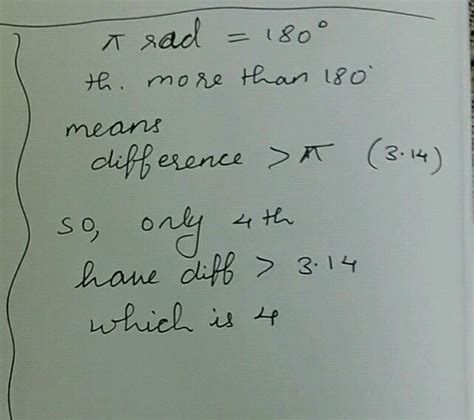 π rad = 180°
th. more than 180°
means
difference > π (3.14)
so, only 4th
have diff > 3.14
which is 4